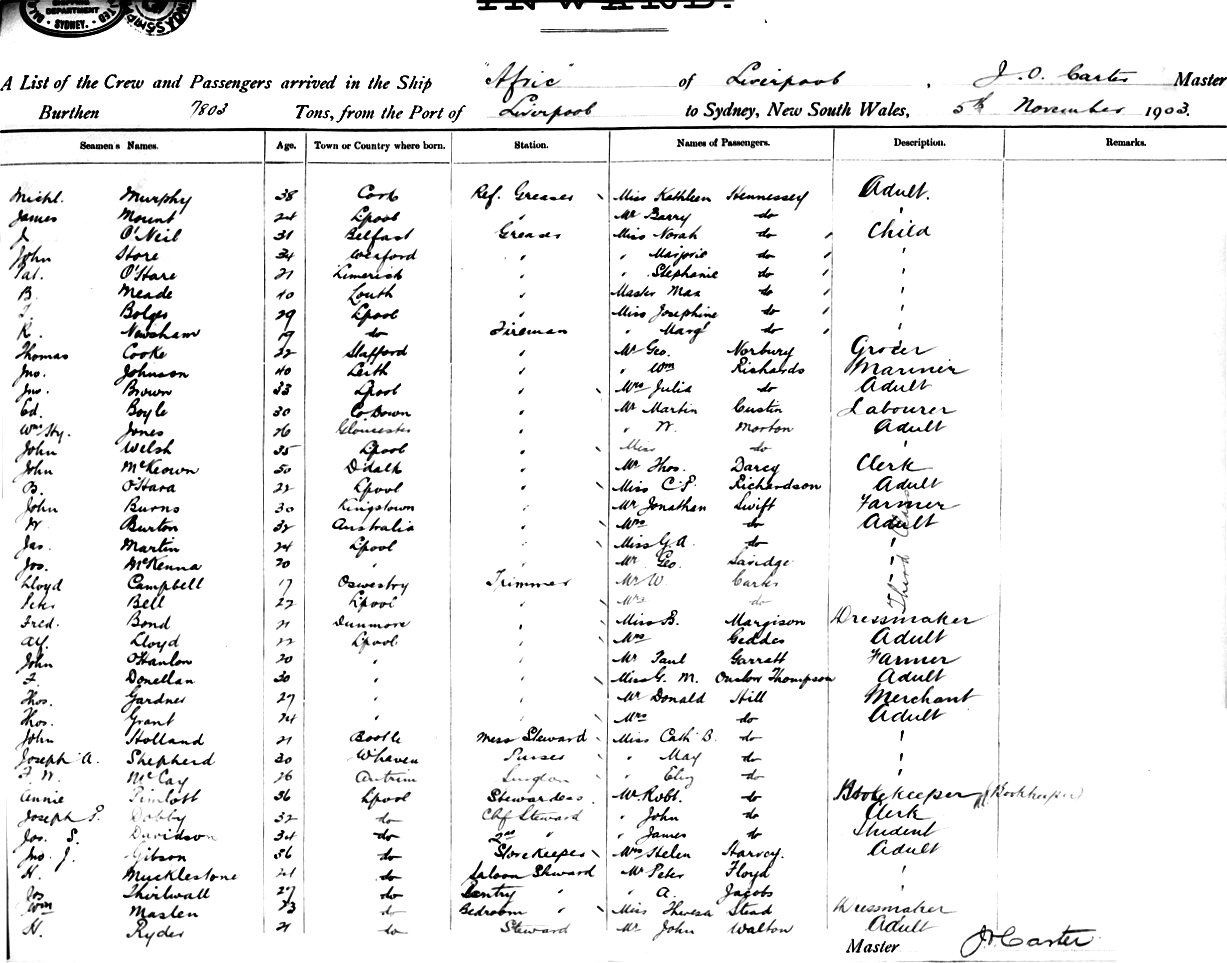 DEPARTMENT
SYDNEY.
INWARD.
A List of the Crew and Passengers arrived in the Ship "Afric" of Liverpool, J. O. Carter Master
Burthen 7803 Tons, from the Port of Liverpool to Sydney, New South Wales, 5th November 1903.
Seamen's Names. Age. Town or Country where born. Station. Names of Passengers. Description. Remarks.
Michl. Murphy 38 Cork Ref. Greaser Miss Kathleen Hennessey Adult.
James Mount 24 Lpool " Mr Barry do "
J O'Neil 31 Belfast Greaser Miss Norah do Child
John Store 34 Wexford " " Marjorie do "
Pat. O'Hare 21 Limerick " " Stephanie do "
B. Meade 40 Louth " Master Max do "
Bolger 29 Lpool " Miss Josephine do "
R. Newsham 19 do Fireman " Margt do "
Thomas Cooke 22 Stafford " Mr Geo. Norbury Grocer
Jno. Johnson 40 Leith " " Wm Richards Mariner
Jno. Brown 33 Lpool " Mrs Julia do Adult
Ed. Boyle 30 Co Down " Mr Martin Custin Labourer
Wm Hy. Jones 26 Gloucester " " W. Morton Adult
John Welsh 35 Lpool " Miss do "
John McKeown 50 D'dalk " Mr Thos. Darcy Clerk
B. O'Hara 22 Lpool " Miss C. Richardson Adult
John Burns 30 Kingstown " Mr Jonathan Swift Farmer
W Burton 32 Australia " Mrs do Adult
Jas. Martin 24 Lpool " Miss G. A. do "
Jos. McKenna 20 " " Mr Geo. Savidge "
Lloyd Campbell 17 Oswestry Trimmer Mr W Carter
Peter Bell 22 Lpool " Mrs do
Third Class
Fred. Bond 21 Dunmore " Miss B. Margison Dressmaker
Alf. Lloyd 22 Lpool " Mrs Geddes Adult
John O'Hanlon 20 " " Mr Paul Garratt Farmer
F. Donellan 30 " " Miss G. M. Onslow Thompson Adult
Thos. Gardner 27 " " Mr Donald Hill Merchant
Thos. Grant 24 " " Mrs do Adult
John Holland 21 Bootle Mess Steward Miss Cath B. do "
Joseph A. Shepherd 30 W'haven Purser " May do "
F. W. McCay 26 Antrim Surgeon " Eliz do "
Annie Timlott 36 Lpool Stewardess Mr Robt. do Bookkeeper (Bookkeeper)
Joseph P. Dobby 32 do Chf Steward " John do Clerk
Jos. S. Davidson 34 do 2nd " " James do Student
Jno. J. Gibson 56 do Storekeeper Mrs Helen Harvey. Adult
H. Mucklestone 21 do Saloon Steward Mr Peter Floyd "
Jos Thirlwall 27 do Pantry " " A. Jacobs "
Wm Maslen 23 do Bedroom " Miss Theresa Stead Dressmaker
H. Ryder 21 do Steward Mr John Walton Adult
Master J O Carter